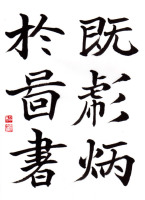 既彪炳
於啚書